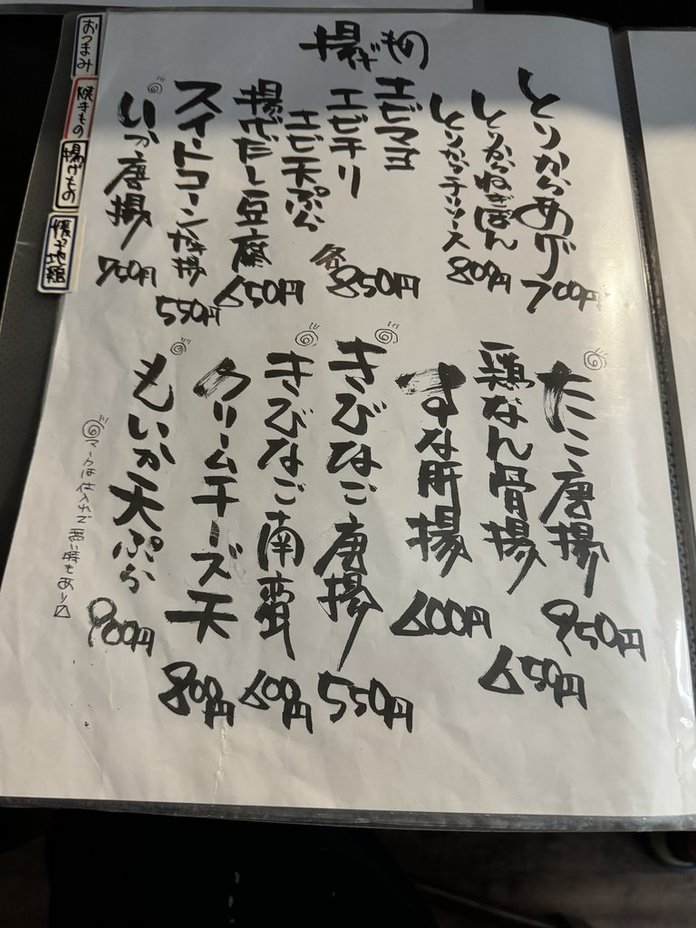 おつまみ
焼きもの
揚げもの
揚げもの
とりからあげ
700円
とりからねぎぽん
とりからチリソース
800円
エビマヨ
エビチリ
エビ天ぷら
各850円
揚げだし豆腐
650円
スイートコーンかき揚
550円
いか唐揚
750円
たこ唐揚
950円
鶏なん骨揚
650円
すな肝揚
600円
きびなご唐揚
550円
きびなご南蛮
600円
クリームチーズ天
800円
もいか天ぷら
900円
マークは仕入れで
無い時もあり〼